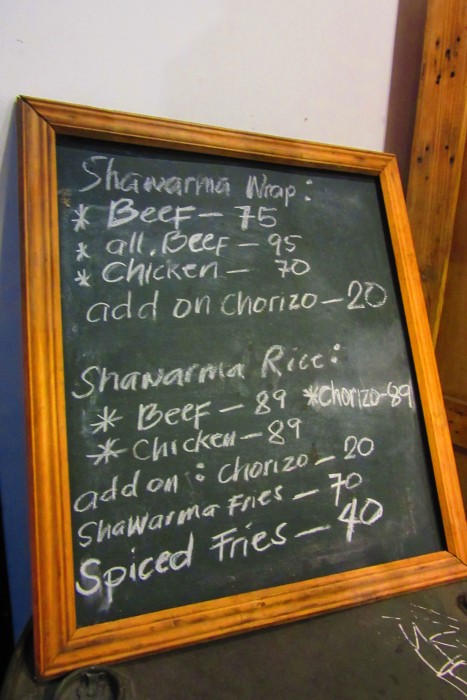 Shawarma Wrap:
* Beef - 75
* all.Beef - 95
* Chicken - 70
add on chorizo - 20
Shawarma Rice:
* Beef - 89 *Chorizo-89
* Chicken - 89
add on : chorizo - 20
Shawarma Fries - 70
Spiced Fries - 40